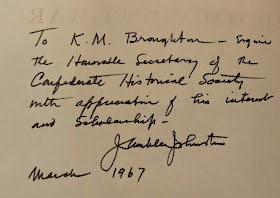 To K.M. Broughton – Esquire
the Honorable Secretary of the
Confederate Historical Society
with appreciation of his interest
and Scholarship –
Johnston
March 1967